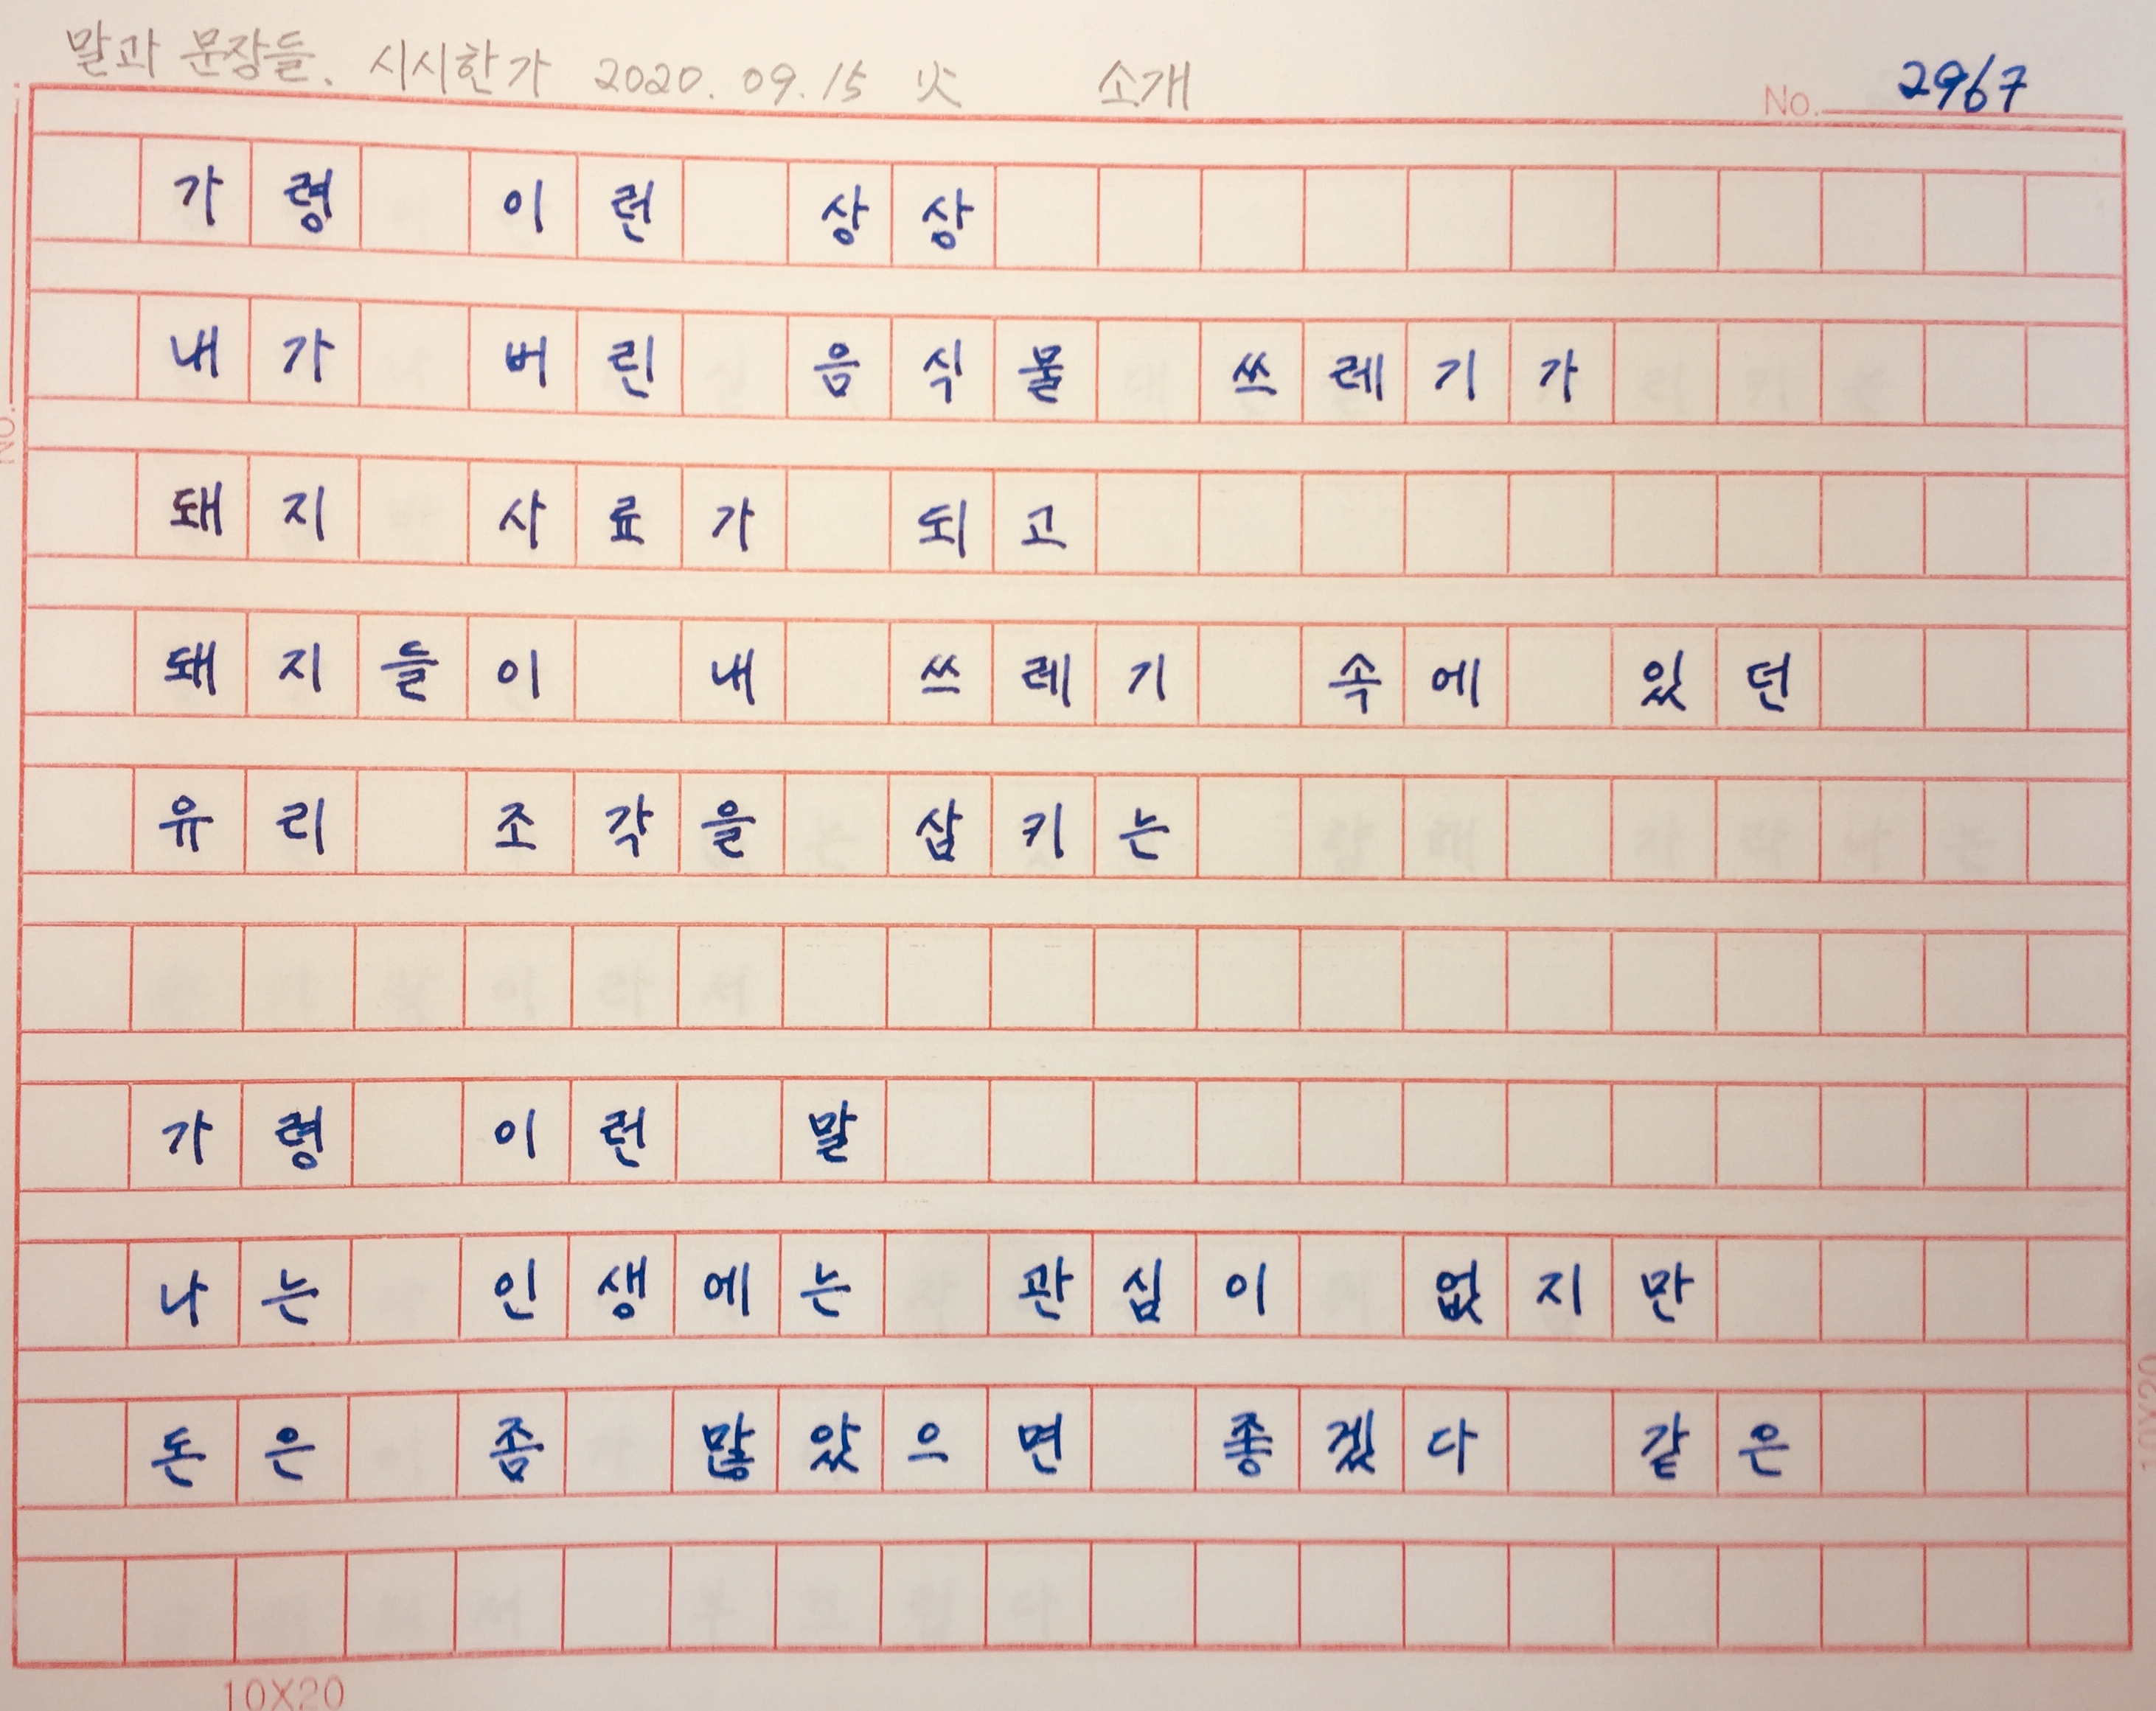 말과 문장들. 시시한가 2020. 09. 15 火 소개
No. 2967
가령 이런 상상
내가 버린 음식물 쓰레기가
돼지 사료가 되고
돼지들이 내 쓰레기 속에 있던
유리 조각을 삼키는
가령 이런 말
나는 인생에는 관심이 없지만
돈은 좀 많았으면 좋겠다 같은
10X20
NO.
10X20